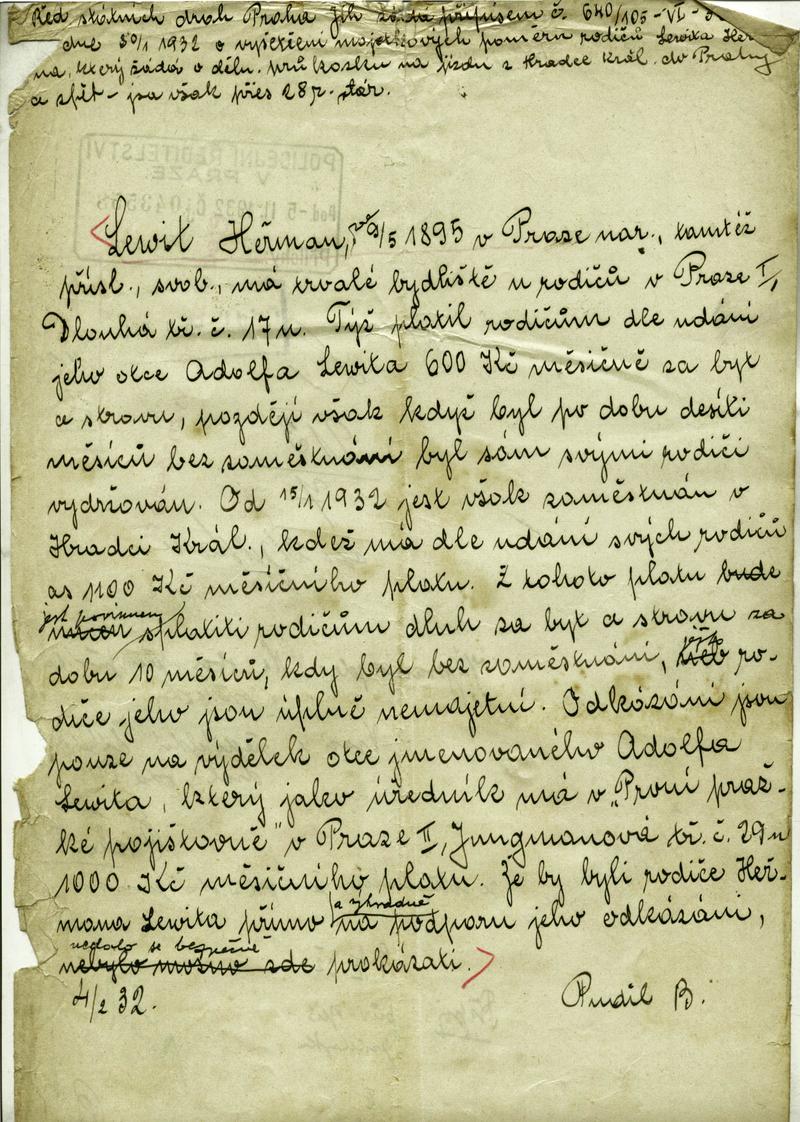 Řed. státních drah Praha jih žádá přípisem č. 640/105-VI-
dne 30/1 1932 o vyšetření majetkových poměrů rodičů Lewita Heř-
mana, který žádá o děln. průkazku na jízdu z Hradce Král. do Prahy
a zpět - jsa však přes 28 r. stár.
Lewit Heřman, 1895 v Praze nar., tamtéž
přísl., svob., má trvalé bydliště u rodičů v Praze I,
Dlouhá tř. č. 17n. Týž platil rodičům dle udání
jeho otce Adolfa Lewita 600 Kč měsíčně za byt
a stravu, později však když byl po dobu desíti
měsíců bez zaměstnání byl sám svými rodiči
vydržován. Od 15/1 1932 jest však zaměstnán v
Hradci Král., kdež má dle udání svých rodičů
as 1100 Kč měsíčního platu. Z tohoto platu bude
jest povinnen
nucen splatiti rodičům dluh za byt a stravu za
dobu 10 měsíců, kdy byl bez zaměstnání, ro-
diče jeho jsou úplně nemajetní. Odkázáni jsou
pouze na výdělek otce jmenovaného Adolfa
Lewita, který jako úředník má v „První praž-
ké pojišťovně" v Praze II, Jungmanová tř. č. 29n
1000 Kč měsíčního platu. Že by byli rodiče Heř-
a výhradně
mana Lewita přímo na podporu jeho odkázáni,
nedalo se bezpečně
nebylo možno zde prokázati.
4/2 32. Pudil B.
POLICEJNÍ ŘEDITELSTVÍ
V PRAZE